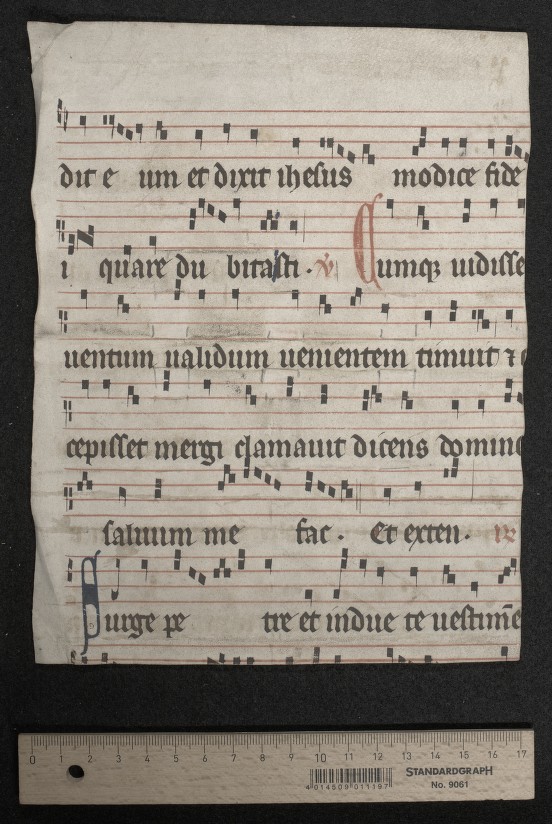 dit e um et dixit ihesus modice fide
i quare du bitasti . ℣ Cumqꝫ uidisse
uentum ualidum uenientem timuit ⁊ c
cepisset mergi clamauit dicens domine
saluum me fac . Et exten . re
Surge pe tre et indue te uestim̄e
0 1 2 3 4 5 6 7 8 9 10 11 12 13 14 15 16 17
4 014509 011197
STANDARDGRAPH
No. 9061